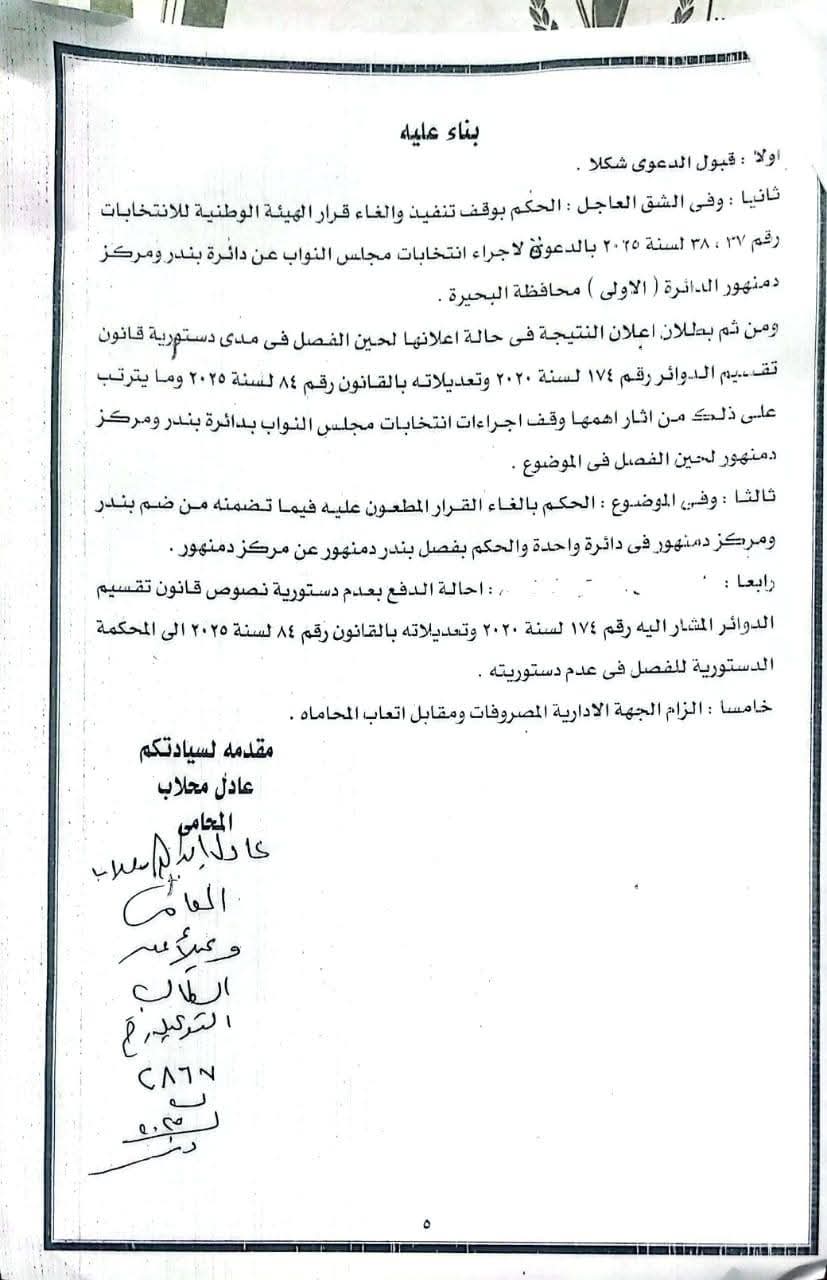 بناء عليه
اولا : قبول الدعوى شكلا .
ثانيا : وفى الشق العاجل : الحكم بوقف تنفيذ والغاء قرار الهيئة الوطنية للانتخابات
رقم ٣٧ ، ٣٨ لسنة ٢٠٢٥ بالدعوة لاجراء انتخابات مجلس النواب عن دائرة بندر ومركز
دمنهور الدائرة ( الاولى ) محافظة البحيرة .
ومن ثم بطلان اعلان النتيجة فى حالة اعلانها لحين الفصل فى مدى دستورية قانون
تقسيم الدوائر رقم ١٧٤ لسنة ٢٠٢٠ وتعديلاته بالقانون رقم ٨٤ لسنة ٢٠٢٥ وما يترتب
على ذلك من اثار اهمها وقف اجراءات انتخابات مجلس النواب بدائرة بندر ومركز
دمنهور لحين الفصل فى الموضوع .
ثالثا : وفى الموضوع : الحكم بالغاء القرار المطعون عليه فيما تضمنه من ضم بندر
ومركز دمنهور فى دائرة واحدة والحكم بفصل بندر دمنهور عن مركز دمنهور .
رابعا : : احالة الدفع بعدم دستورية نصوص قانون تقسيم
الدوائر المشار اليه رقم ١٧٤ لسنة ٢٠٢٠ وتعديلاته بالقانون رقم ٨٤ لسنة ٢٠٢٥ الى المحكمة
الدستورية للفصل فى عدم دستوريته .
خامسا : الزام الجهة الادارية المصروفات ومقابل اتعاب المحاماه .
مقدمه لسيادتكم
عادل محلاب
المحامى
عادل محلاب
المحامى
وكيلا عن
الطالب
التوكيل رقم
٢٨٦٧
٥